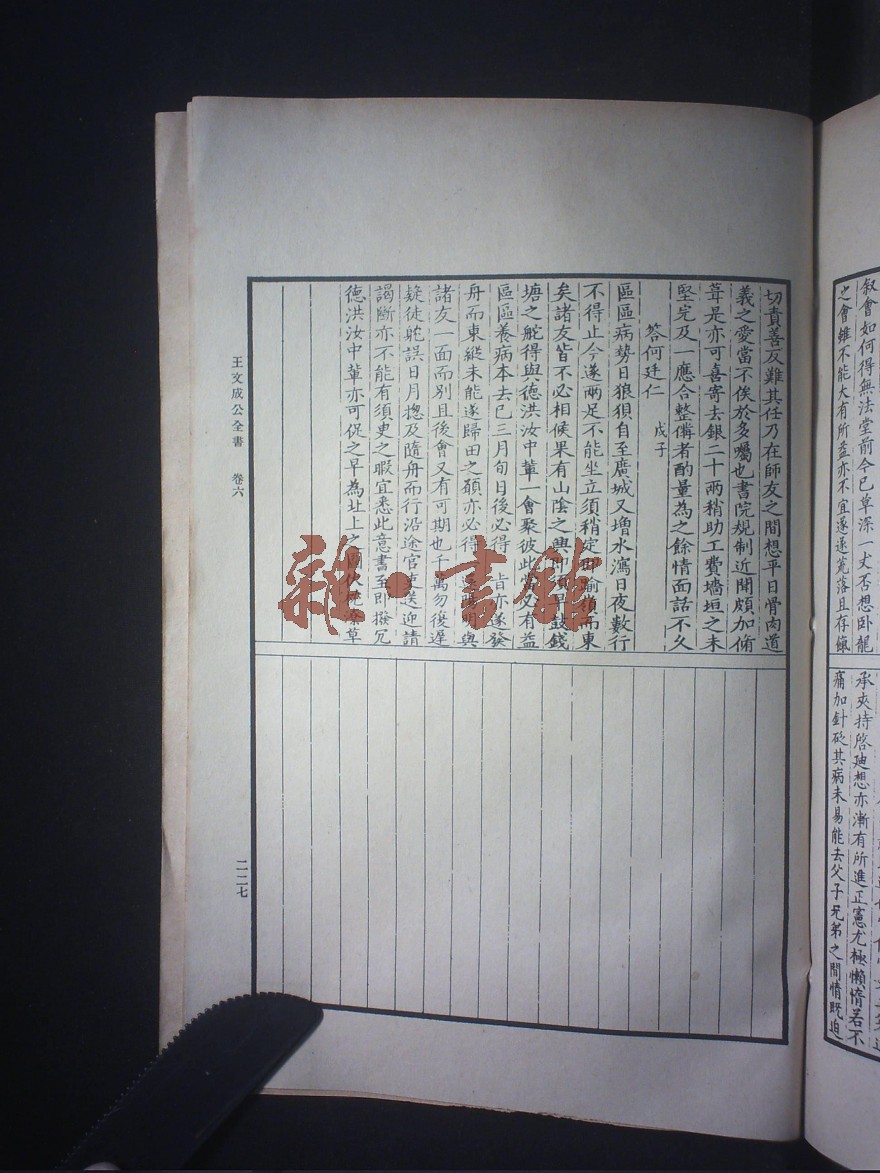 叙會如何得無法堂前今已草深一丈否想卧龍
之會雖不能大有所益亦不宜遂遂荒落且存餼
承夾持啓廸想亦漸有所進正憲尤極懶惰若不
痛加針砭其病未易能去父子兄弟之間情既迫
切責善反難其任乃在師友之間想平日骨肉道
義之愛當不俟於多囑也書院規制近聞頗加脩
葺是亦可喜寄去銀二十兩稍助工費墻垣之未
堅完及一應合整備者酌量為之餘情面話不久
答何廷仁 戊子
區區病勢日狼狽自至廣城又增水瀉日夜數行
不得止今遂兩足不能坐立須稍定即踰嶺而東
矣諸友皆不必相候果有山陰之興即須早鼓錢
塘之舵得與德洪汝中輩一會聚彼此當必有益
區區養病本去已三月旬日後必得旨亦遂發
舟而東縱未能遂歸田之願亦必得一還陽明與
諸友一面而別且後會又有可期也千萬勿復遲
疑徒躭誤日月揔及隨舟而行沿途官吏送迎請
謁斷亦不能有須臾之暇宜悉此意書至即撥冗
德洪汝中輩亦可促之早為北上之圖伏枕潦草
王文成公全書 卷六
二二七
雜·書館